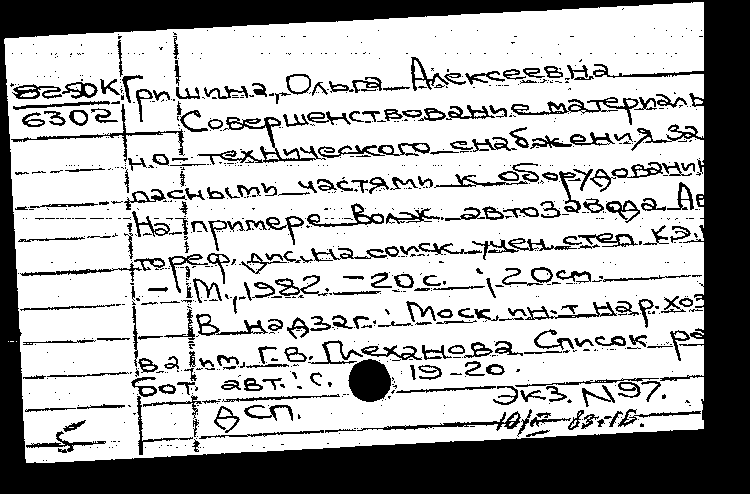 82-50К Гришина, Ольга Алексеевна.
6302 Совершенствование материаль
но-технического снабжения за
пасными частями к оборудовани
На примере Волж. автозавода Ав
тореф. дис. на соиск. учен. степ. к.э.н
- М., 1982. - 20 с. ; 20 см.
В надзаг.: Моск. ин-т нар. хоз
ва им. Г.В. Плеханова Список ра
бот авт.: с. 19-20.
ДСП. Экз. N 97.
5